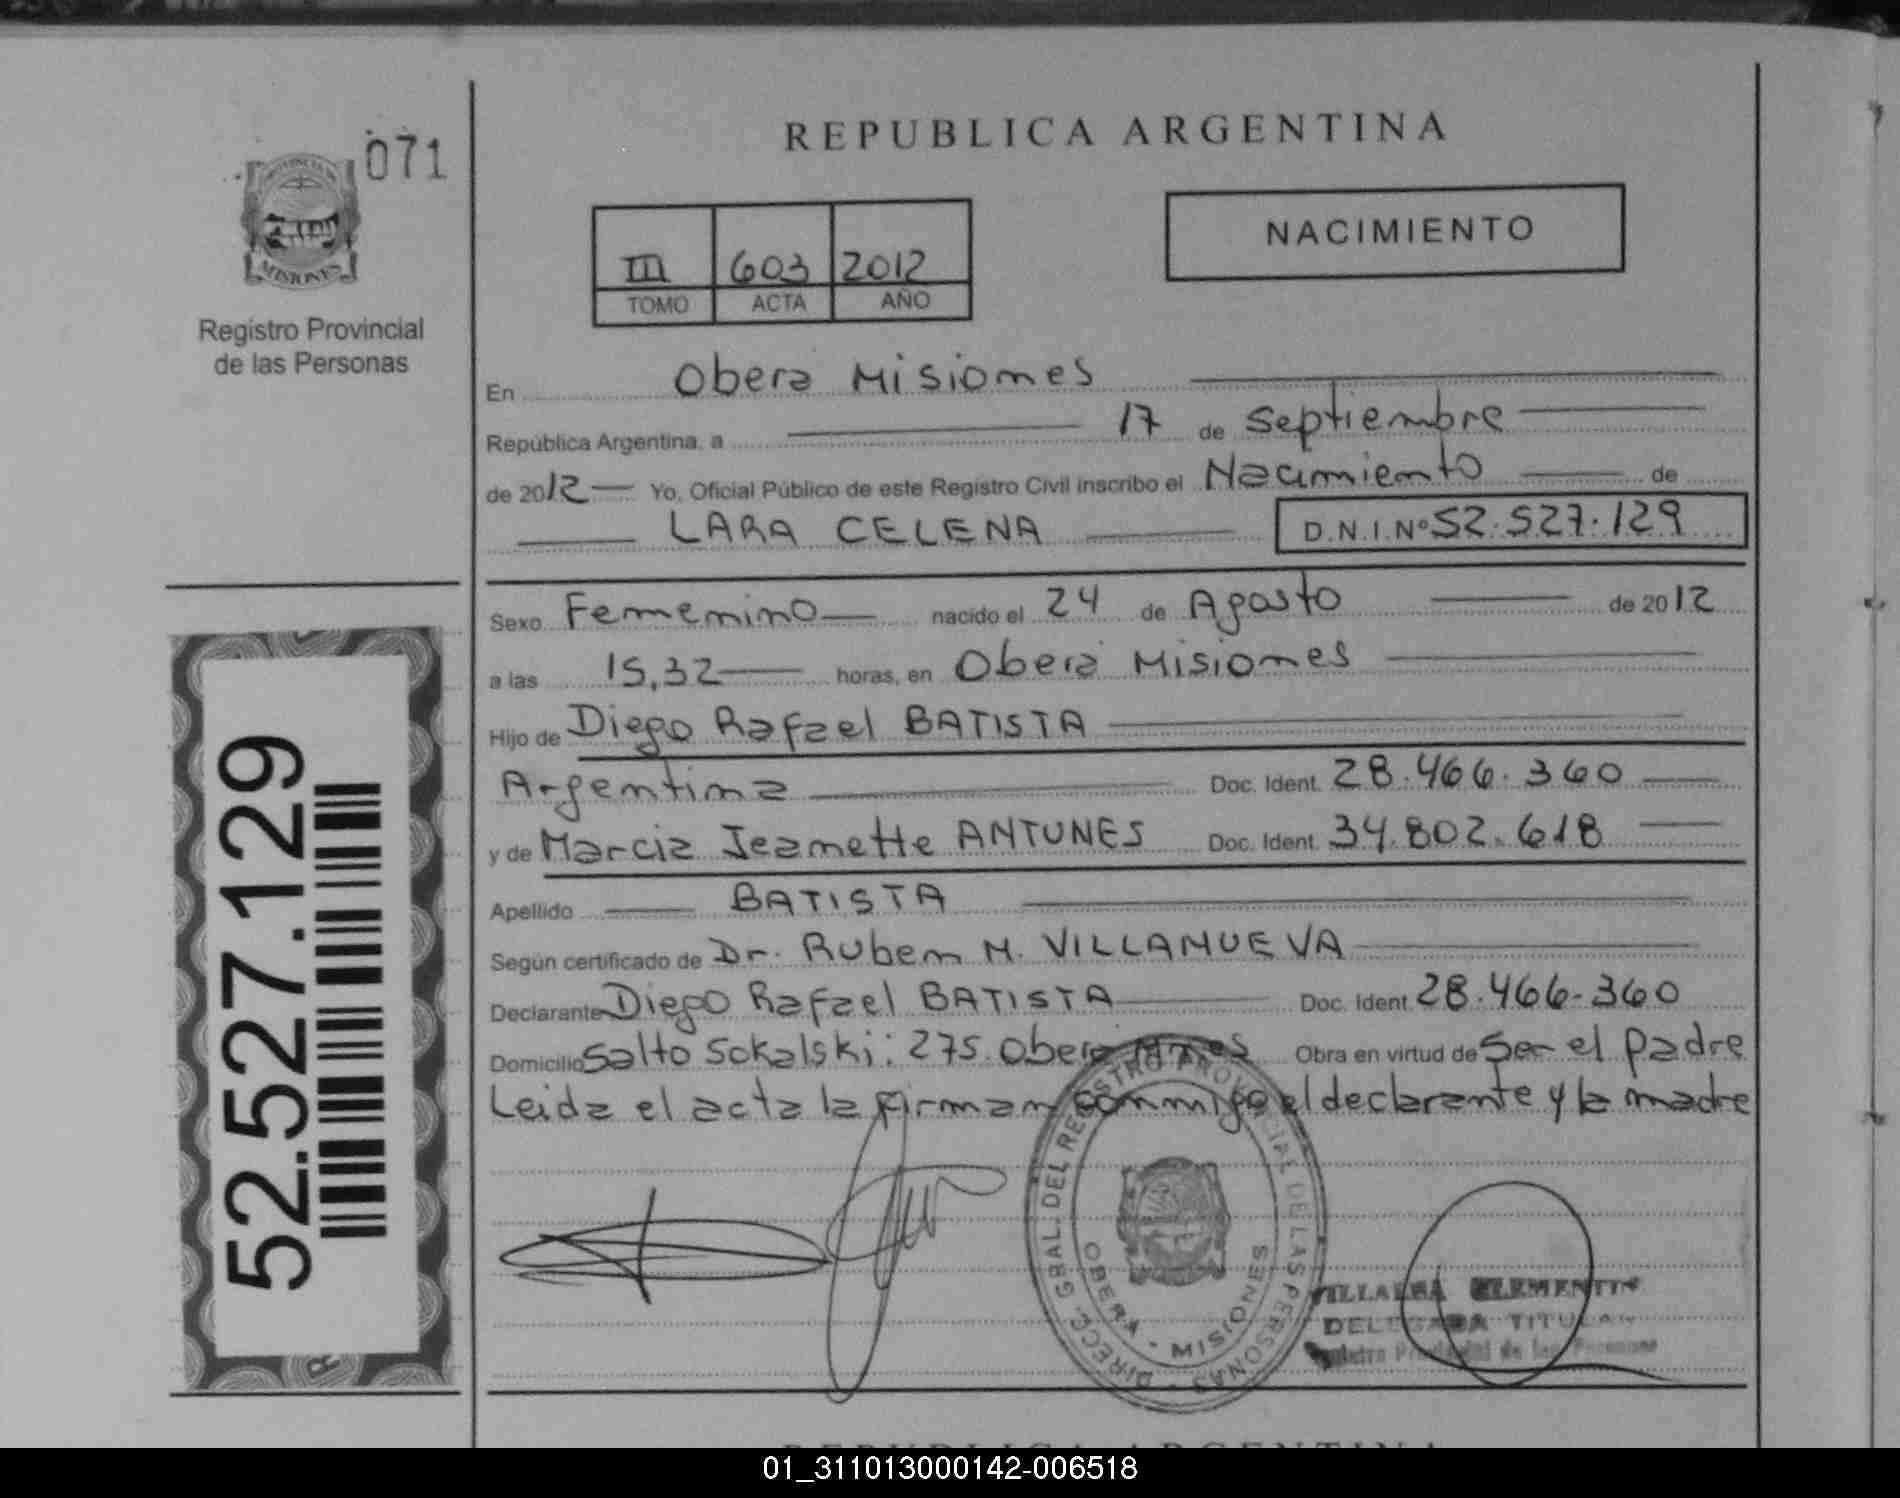 071
PROVINCIA DE
MISIONES
Registro Provincial
de las Personas
REPUBLICA ARGENTINA
III 603 2012
TOMO ACTA AÑO
NACIMIENTO
En Oberá Misiones
República Argentina, a 17 de Septiembre
de 2012 Yo, Oficial Público de este Registro Civil inscribo el Nacimiento de
LARA CELENA D.N.I.Nº 52.527.129
Sexo Femenino nacido el 24 de Agosto de 2012
a las 15,32 horas, en Oberá Misiones
Hijo de Diego Rafael BATISTA
Argentina Doc. Ident. 28.466.360
y de Marcia Jeanette ANTUNES Doc. Ident. 34.802.618
Apellido BATISTA
Según certificado de Dr. Ruben M. VILLANUEVA
Declarante Diego Rafael BATISTA Doc. Ident. 28.466-360
Domicilio Salto Sokalski: 275. Oberá Mnes Obra en virtud de Ser el padre
Leida el acta la firman conmigo el declarante y la madre
52.527.129
DIRECC. GRAL. DEL REGISTRO PROVINCIAL DE LAS PERSONAS
OBERA - MISIONES
VILLALBA CLEMENTIN
DELEGADA TITULAR
Registro Provincial de las Personas
REPUBLICA ARGENTINA
01_311013000142-006518